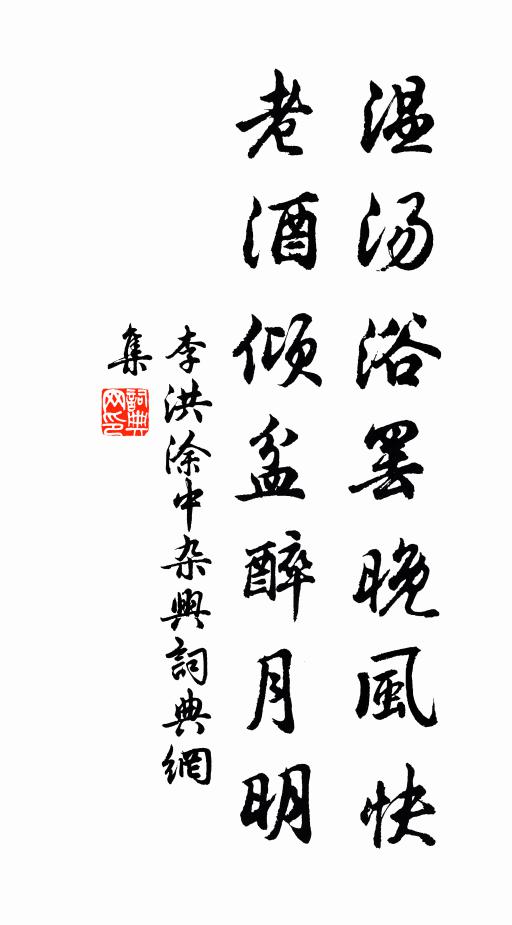 温汤浴罢晚風快
老酒倾盆醉月明
李洪涂中杂興詞典網
集
詞典
网印